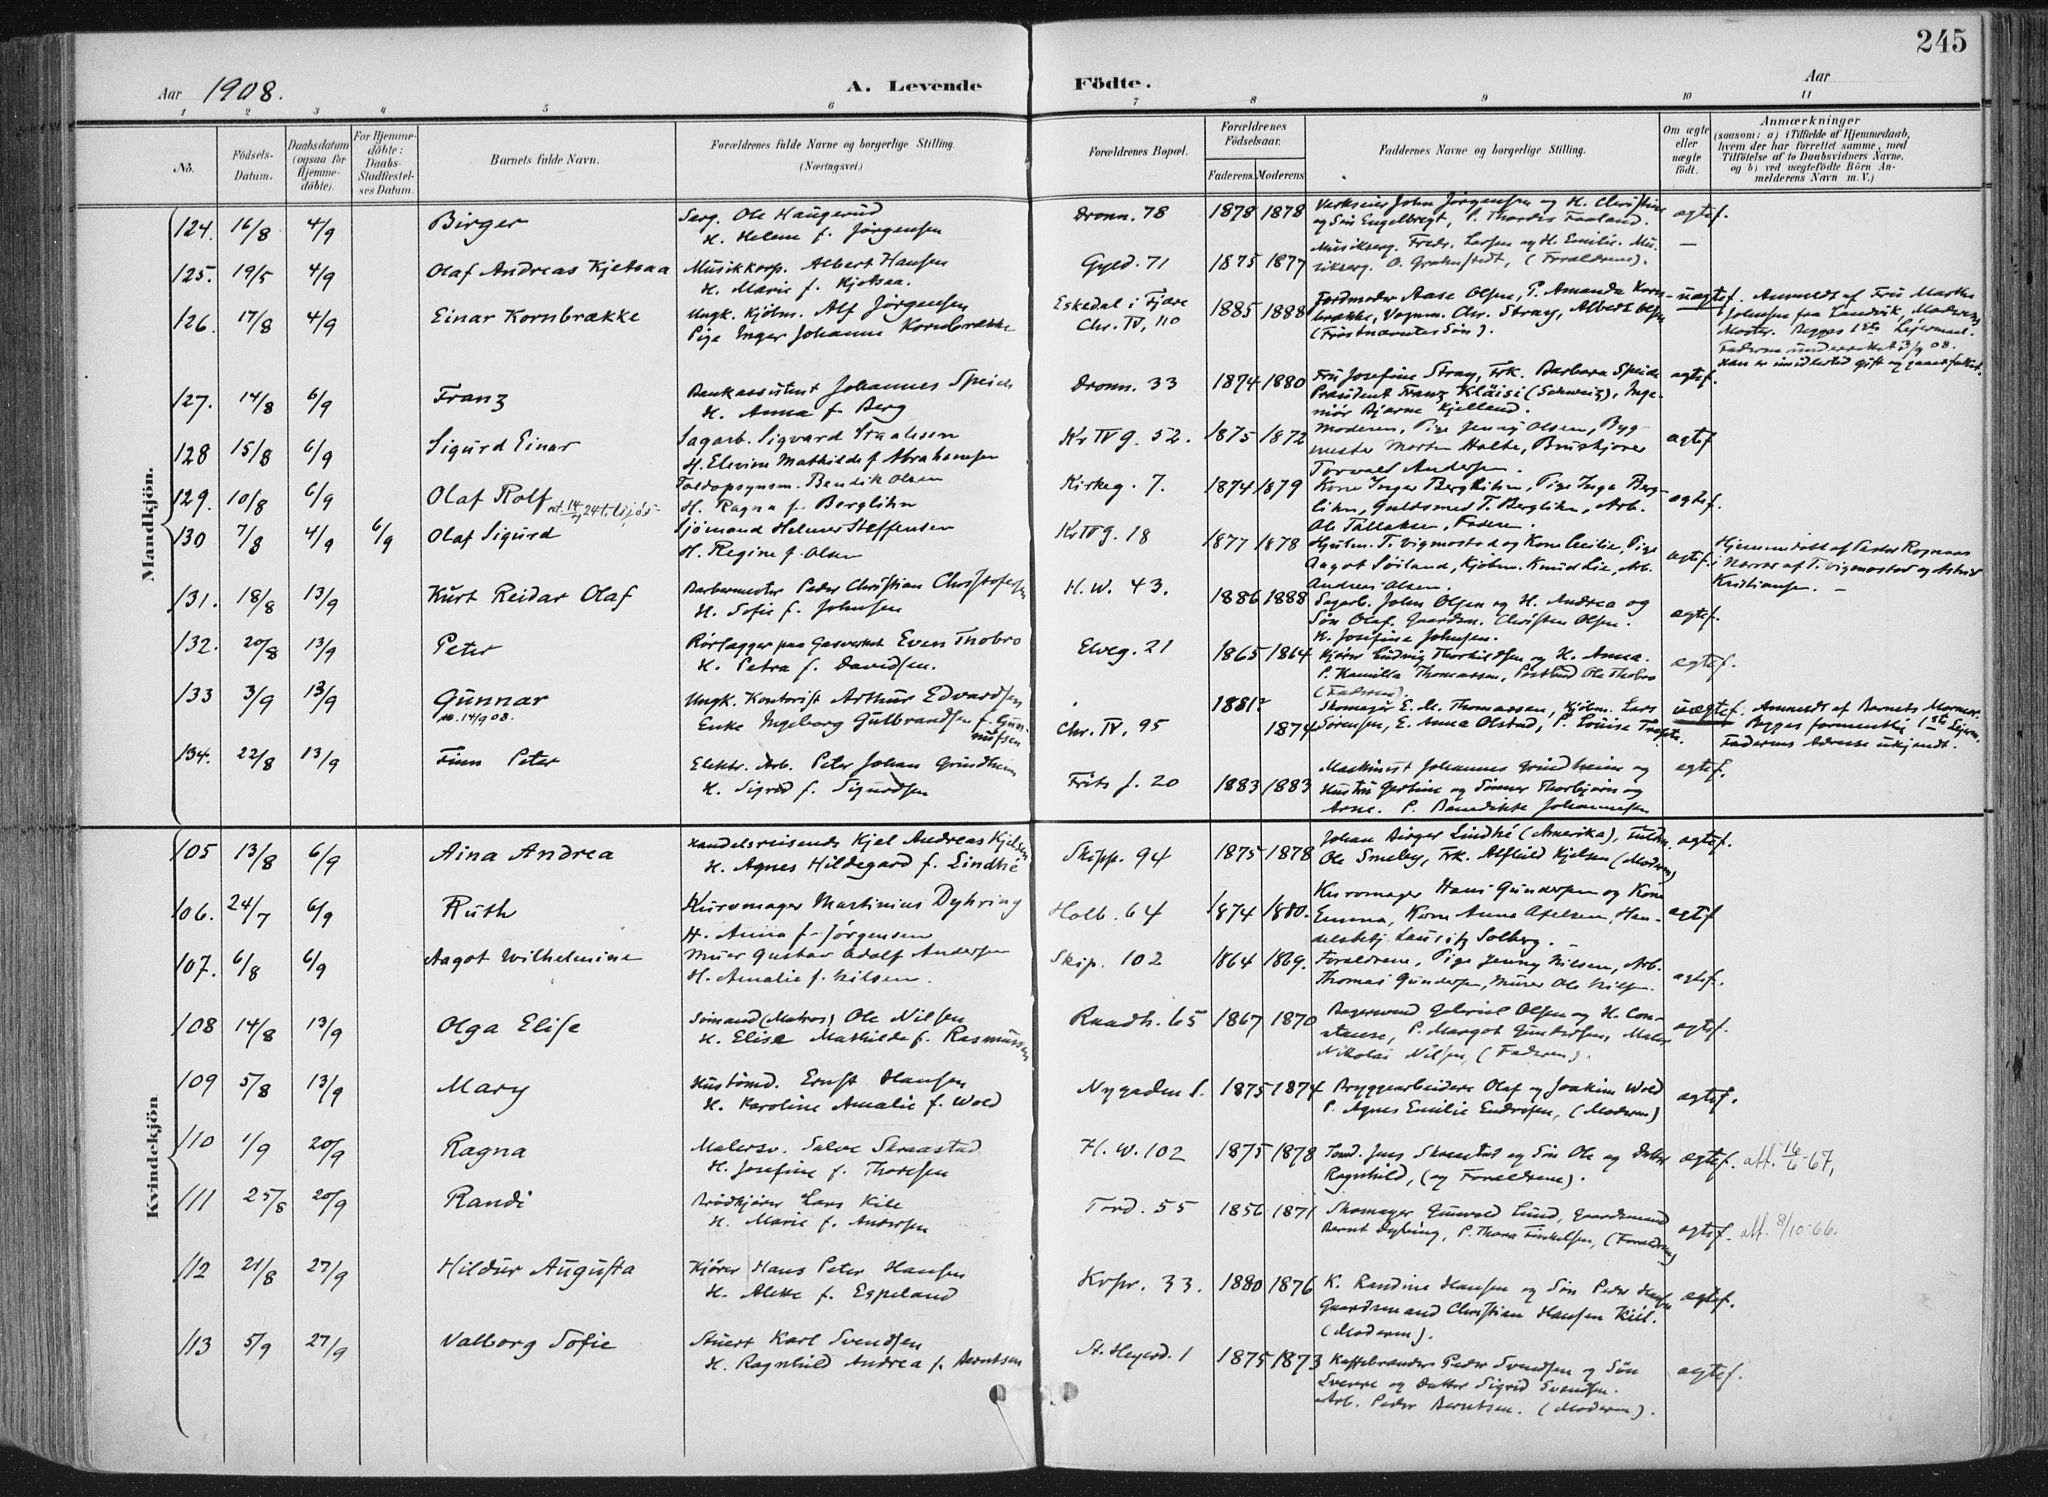 245
Aar 1908.
A. Levende Födte.
Aar
1 2 3 4 5 6 7 8 9 10 11
No.
Födsels-Datum.
Daabsdatum (ogsaa for Hjemmedöbte).
For Hjemmedöbte: Daabs-Stadfæstelses Datum.
Barnets fulde Navn.
Forældrenes fulde Navne og borgerlige Stilling. (Næringsvei.)
Forældrenes Bopæl.
Forældrenes Födselsaar.
Faderens. Moderens
Faddernes Navne og borgerlige Stilling.
Om ægte eller uægte födt.
Anmærkninger
(saasom: a) i Tilfælde af Hjemmedaab, hvem der har forrettet samme, med Tilföielse af to Daabsvidners Navne, og b) ved uægtefödte Börn Anmelderens Navn m. V.)
Mandkjön.
124. 16/8 4/9 Birger
Serg. Ole Haugerud
H. Helene f. Jørgensen
Dronn. 78 1878 1878
Verkseier John Jørgensen og H. Christine
og Søn Engelbregt, P. Thordis Faaland.
ægtef.
125. 19/5 4/9 Olaf Andreas Kjetsaa
Musikkorp. Albert Hansen
H. Marie f. Kjetsaa.
Gyld. 71 1875 1877
Musikserg. Fredr. Larsen og H. Emilie. Musikserg. O. (Forældrene).
—
126. 17/8 4/9 Einar Kornbrække
Ungk. Kjøbm. Alf Jørgensen
Pige Inger Johanne Kornbrække
Eskedal i Fjære
Chr. IV, 110 1885 1888
Jordmoder Aase Olsen, P. Amanda Kornbrække, Vognm. Chr. Stray, Albert Olsen
(Førstnævntes Søn).
uægtef. Anmeldt af Fru Marthe
Johnsen fra Landvik, Moderens
Moster. Begges 1ste Leiermaal.
Faderen underrettet 3/9 08.
Han er imidlertid gift og
127. 14/8 6/9 Franz
Bankassistent Johannes Speich
H. Anna f. Berg
Dronn. 33 1874 1880
Fru Josefine Stray, Frk. Barbara Speich
Præsident Franz Kläisi (Schweiz), Ingeniør Bjarne Kjelland.
ægtef.
128 15/8 6/9 Sigurd Einar
Sagarb. Sigvard Staalesen
H. Elevine Mathilde f. Abrahamsen
Kr IV g. 52. 1875 1872
Moderen, Pige Jenny Olsen, Bygmester Morten Holte,
Torvald Andersen.
ægtef
129. 10/8 6/9 Olaf Rolf
Toldopsynsm. Bendik Olsen
H. Ragna f. Berglihn
Kirkeg. 7. 1874 1879
Kone Inger Berglihn, Pige Inga Berglihn, Guldsmed T. Berglihn, Arb.
Ole Tallaksen, Faderen.
ægtef.
130 7/8 4/9 6/9 Olaf Sigurd
Sjømand Helmer Steffensen
H. Regine f. Olsen
Kr IV g. 18 1877 1878
Hjulm. T. Vigmostad og Kone Cecilie, Pige
Aagot Søiland, Kjøbm. Knud Lie, Arb.
Andreas Olsen.
ægtef.
Hjemmedøbt af Peder Rognaas
i Nærvær af T. Vigmostad og Astrid
Kristiansen. —
131. 18/8 13/9 Kurt Reidar Olaf
Barbermester Peder Christian Christofersen
H. Sofie f. Johnsen
H. W. 43. 1886 1888
Sagarb. John Olsen og H. Andrea og
Søn Olaf. Gaardm. Christen Olsen.
K. Josefine Johnsen.
ægtef.
132. 20/8 13/9 Peter
Rørlægger paa Gasverket Even Thobro
H. Petra f. Davidsen.
Elveg. 21 1865 1864
Kjører Ludvig Thorkildsen og H. Anna.
P. Kamilla Thomassen, Postbud Ole Thobro
(Faderen).
ægtef.
133 3/9 13/9 Gunnar
14/9 08.
Ungk. Kontorist Arthur Edvardsen
Enke Ingeborg Gulbrandsen f. Gunnufsen
Chr. IV, 95 1881? 1874
Skomager E. M. Thomassen, Kjøbm. Lars
Sørensen, E. Anna Olstad, P. Louise
uægtef. Anmeldt af Barnets Mormor.
Begges formentlig 1ste Leierm.
Faderens Adresse ukjendt.
134. 22/8 13/9 Finn Peter
Elektr. Arb. Peter Johan Grindheim
H. Sigrid f. Sigurdsen
Frits J. 20 1883 1883
Maskinist Johannes Grindheim og
Hustru Gertine og Sønner Thorbjørn og
Arne. P. Benedikte Johannesen
ægtef.
Kvindekjön
105 13/8 6/9 Aina Andrea
Handelsreisende Kjel Andreas Kjelsen
H. Agnes Hildegard f. Lindhé
Skipp. 94 1875 1878
Johan Birger Lindhé (Amerika), Fuldm.
Ole Smeby, Frk. Alfhild Kjelsen (Moderen)
ægtef.
106. 24/7 6/9 Ruth
Kurvmager Martinius Dyhring
H. Anna f. Jørgensen
Holb. 64 1874 1880.
Kurvmager Hans Gundersen og Kone
Emma, Kone Anna Axelsen, Handelsbetj. Lauritz Solberg. —
ægtef
107. 6/8 6/9 Aagot Wilhelmine
Murer Gustav Adolf Andersen
H. Amalie f. Nilsen.
Skip. 102 1864 1869.
Forældrene, Pige Jenny Nilsen, Arb.
Thomas Gundersen, Murer Ole Nilsen.
ægtef.
108 14/8 13/9 Olga Elise
Sømand (Matros) Ole Nilsen
H. Elise Mathilde f. Rasmussen
Rundh. 65 1867 1870
Bagersvend Gabriel Olsen og H. Constanse, P. Margot Gundersen, Maler
Nikolai Nilsen, (Faderen).
ægtef.
109 5/8 13/9 Mary
Hustømd. Ernst Hansen
H. Karoline Amalie f. Wold
Nygaden 1. 1875 1874
Bryggearbeidere Olaf og Joakim Wold
P. Agnes Emilie Endresen, (Moderen)
ægtef.
110 1/9 20/9 Ragna
Malersv. Salve Skraastad
H. Josefine f. Thoresen
H. W. 102 1875 1878
Tømd. Jens Skraastad og Søn Ole og Datter
Ragnhild, (og Forældrene).
ægtef. att. 16/6-67,
111 25/8 20/9 Randi
Brødkjører Lars Kile
H. Marie f. Andersen
Tord. 55 1856 1871
Skomager Gunvald Lund, Gaardsmand
Bernt Dybing, P. Thora Finkelsen, (Forældrene)
ægtef. att. 8/10-66.
112 21/8 27/9 Hildur Augusta
Kjører Hans Peter Hansen
H. Alette f. Espeland
Kvpr. 33. 1880 1876
K. Randine Hansen og Søn Peder Hansen
Gaardsmand Christian Hansen Kiil.
(Moderen).
ægtef.
113 5/9 27/9 Valborg Sofie
Stuert Karl Svendsen
H. Ragnhild Andrea f. Berntsen
St. Heyerd. 1 1875 1873
Kaffebrænder Peder Svendsen og Søn
Sverre og Datter Sigrid Svendsen.
Arb. Peder Berntsen. (Moderen).
ægtef.